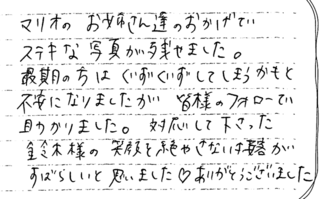 マリオの お姉さん達のおかげで
ステキな写真が残せました。
最期の方は ぐずぐずしてしまうかもと
不安になりましたが 皆様のフォローで
助かりました。 対応して下さった
鈴木様の 笑顔を絶やさない接客が
すばらしいと 思いました♡ありがとうございました